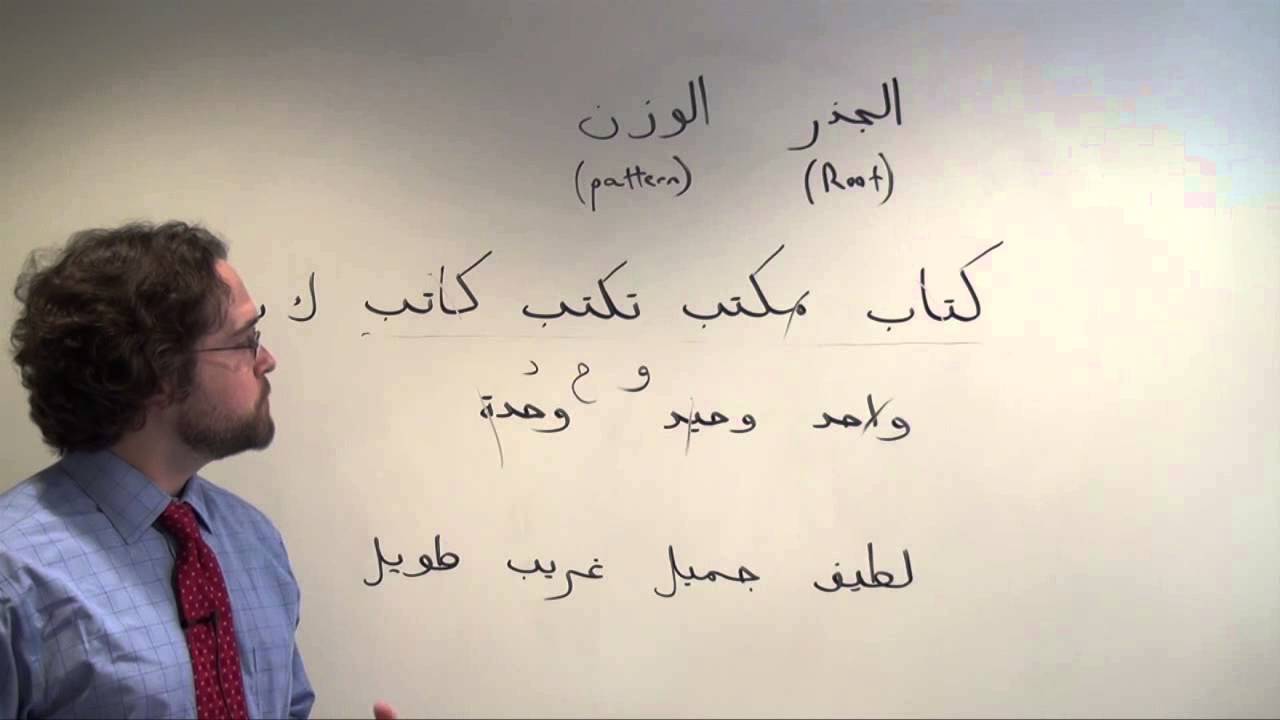 الجذر الوزن
(Root) (pattern)
كتاب مكتب تكتب كاتب ك
و ح د
واحد وحيد وحدة
لطيف جميل غريب طويل